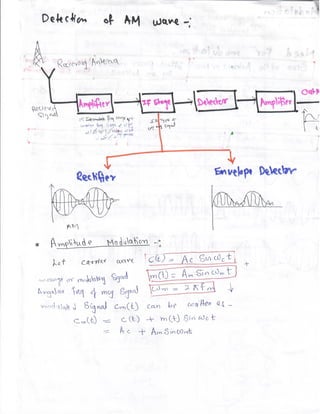 Detection of AM wave -:
Recieving Antena
Amplifier
IF Stage
Detector
Amplifier
Recieved
Signal
Rectifier
Envelope Detector
AM
* Amplitude Modulation -:
Let carrier wave c(t) = Ac Sin ωc t
or modulating Signal m(t) = Am Sin ωm t
Angular freq of msg Signal ωm = 2πfm
modulated Signal Cm(t) can be written as -
Cm(t) = c(t) + m(t) Sin ωc t
= Ac + Am Sin ωmt